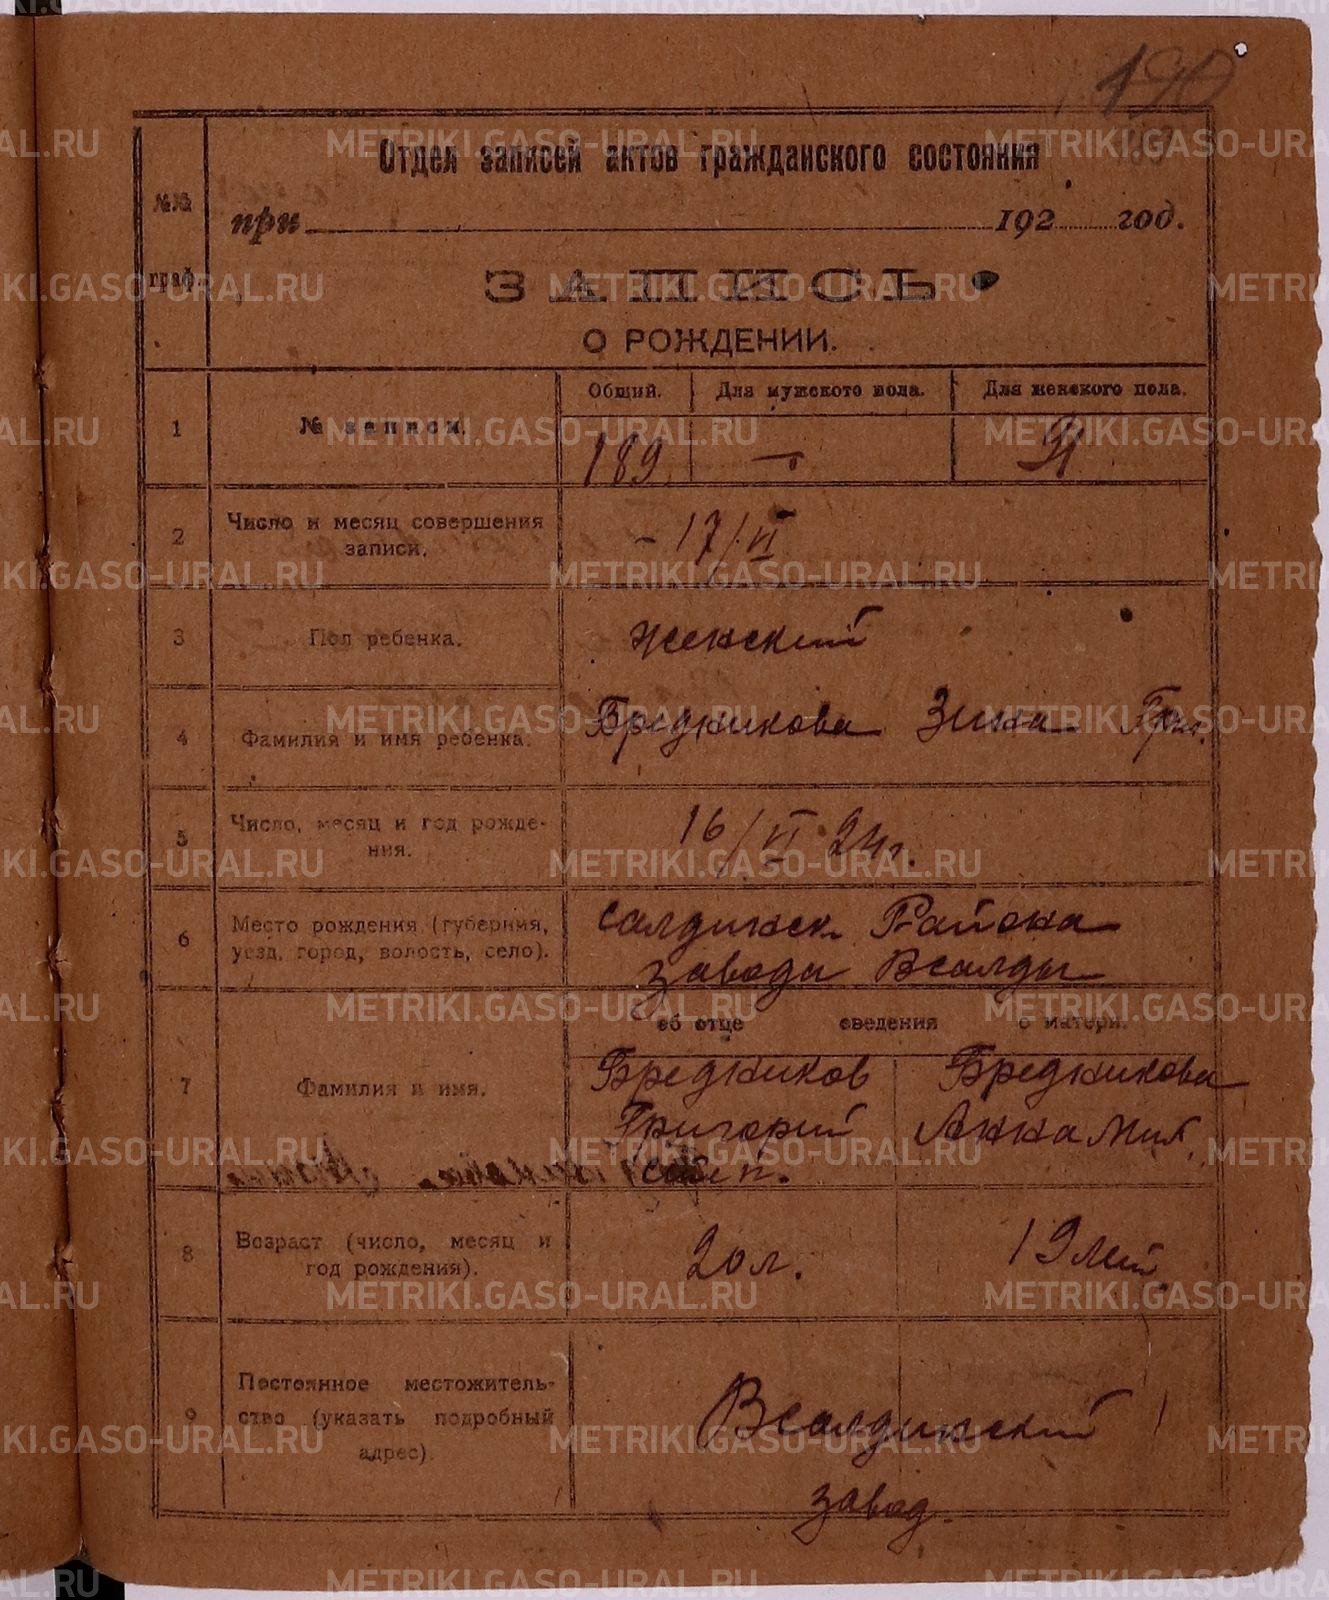 190
Отдел записей актов гражданского состояния
№№ граф.
при 192 год.
ЗАПИСЬ
О РОЖДЕНИИ.
Общий. Для мужского пола. Для женского пола.
1 № записи. 189 — 91
2 Число и месяц совершения
записи. - 17/VI
3 Пол ребенка. женский
4 Фамилия и имя ребенка. Бредникова Зина Григ.
5 Число, месяц и год рожде-
ния. 16/VI 24г.
6 Место рождения (губерния,
уезд, город, волость, село).
Салдинск Района
завода Всалды
об отце сведения о матери.
7 Фамилия и имя.
Бредников Бредникова
Григорий Анна Мих.
8 Возраст (число, месяц и
год рождения). 20 л. 19 лет.
9 Постоянное местожитель-
ство (указать подробный
адрес).
Всалдинский
завод.
METRIKI.GASO-URAL.RU